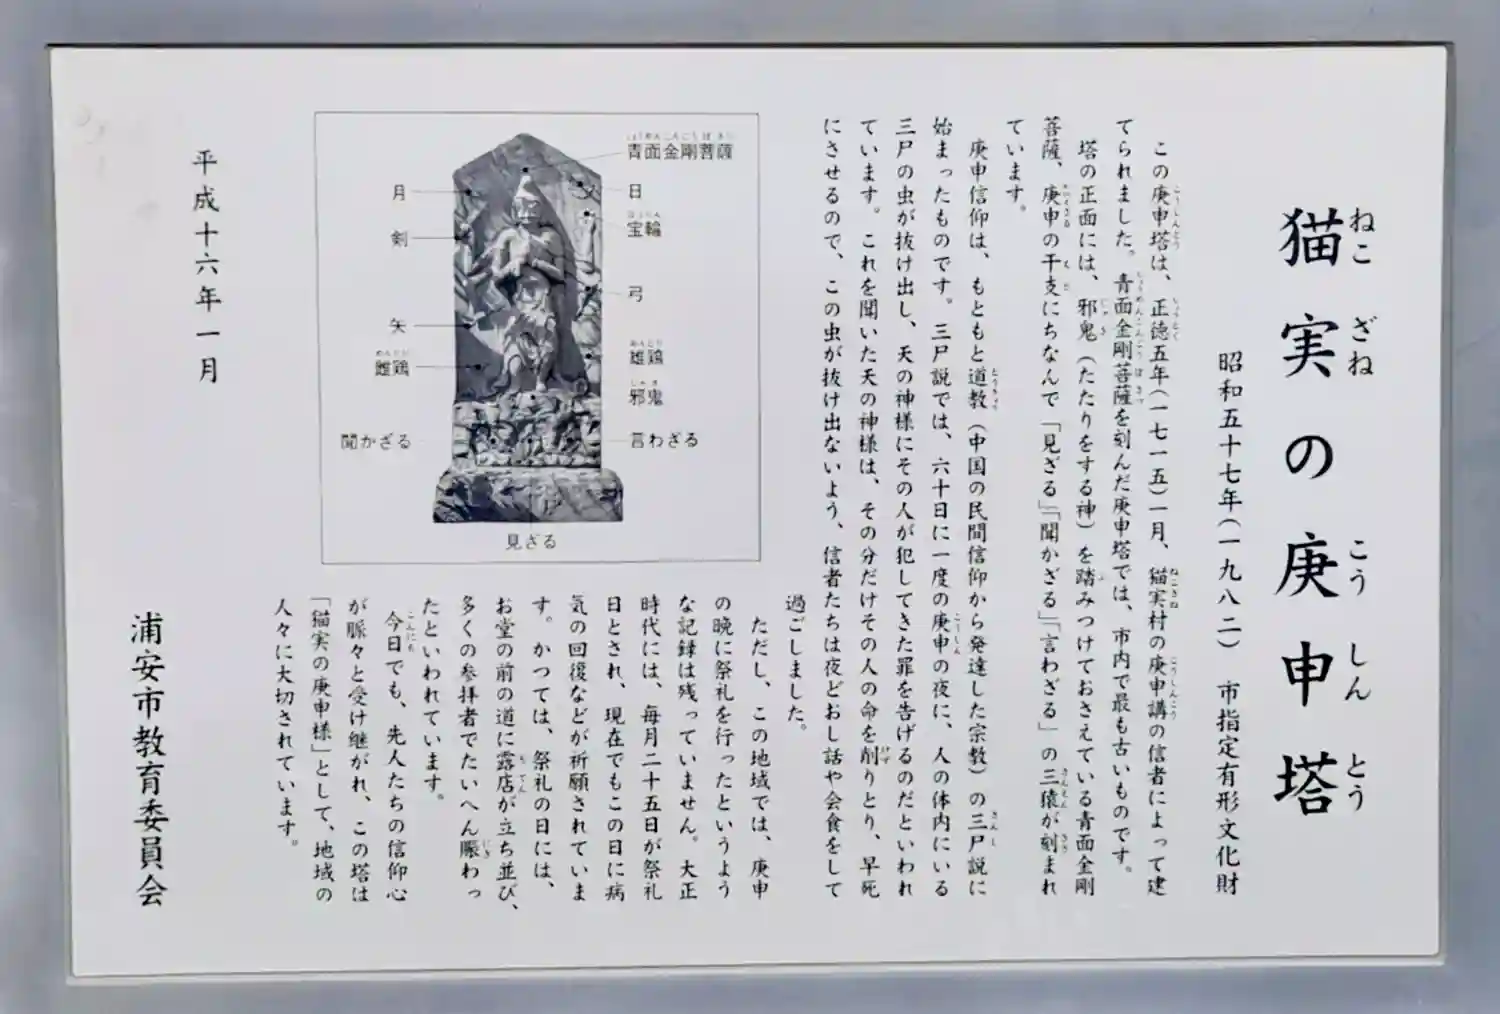 猫実の庚申塔
ねこ ざね こう しん とう
昭和五十七年(一九八二) 市指定有形文化財
この庚申塔は、正徳五年(一七一五)一月、猫実村の庚申講の信者によって建
てられました。青面金剛菩薩を刻んだ庚申塔では、市内で最も古いものです。
塔の正面には、邪鬼(たたりをする神)を踏みつけておさえている青面金剛
菩薩、庚申の干支にちなんで「見ざる」「聞かざる」「言わざる」の三猿が刻まれ
ています。
庚申信仰は、もともと道教(中国の民間信仰から発達した宗教)の三尸説に
始まったものです。三尸説では、六十日に一度の庚申の夜に、人の体内にいる
三尸の虫が抜け出し、天の神様にその人が犯してきた罪を告げるのだといわれ
ています。これを聞いた天の神様は、その分だけその人の命を削りとり、早死
にさせるので、この虫が抜け出ないよう、信者たちは夜どおし話や会食をして
過ごしました。
ただし、この地域では、庚申
の晩に祭礼を行ったというよう
な記録は残っていません。大正
時代には、毎月二十五日が祭礼
日とされ、現在でもこの日に病
気の回復などが祈願されていま
す。かつては、祭礼の日には、
お堂の前の道に露店が立ち並び、
多くの参拝者でたいへん賑わっ
たといわれています。
今日でも、先人たちの信仰心
が脈々と受け継がれ、この塔は
「猫実の庚申様」として、地域の
人々に大切されています。
青面金剛菩薩
日
宝輪
弓
雄鶏
邪鬼
言わざる
月
剣
矢
雌鶏
聞かざる
見ざる
平成十六年一月
浦安市教育委員会